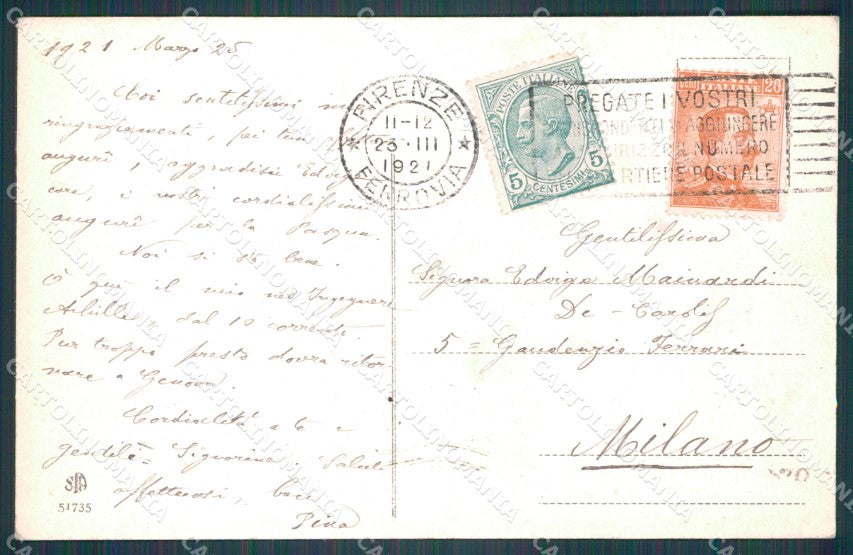 1921 Marzo 25
Coi sentitissimi miei
ringraziamenti, pei tuoi
augurî, aggradisci Edvige
cara, i nostri cordialissimi
augurî per la Pasqua.
Noi si sta bene.
È qui il mio Ingegnere
Achille dal 10 corrente.
Pur troppo presto dovrà ritor-
nare a Genova.
Cordialità a te e
gentile Signorina. Saluti
affettuosi, baci
Pina
SIA
51735
FIRENZE
11-12
23·III
1921
FERROVIA
POSTE ITALIANE
5 5
CENTESIMI
20
PREGATE I VOSTRI
AGGIUNGERE
NUMERO
POSTALE
Gentilissima
Signora Edvige Mainardi
De-Carlis
5 = Gaudenzio Ferrari
Milano
CARTOLINOMANIA